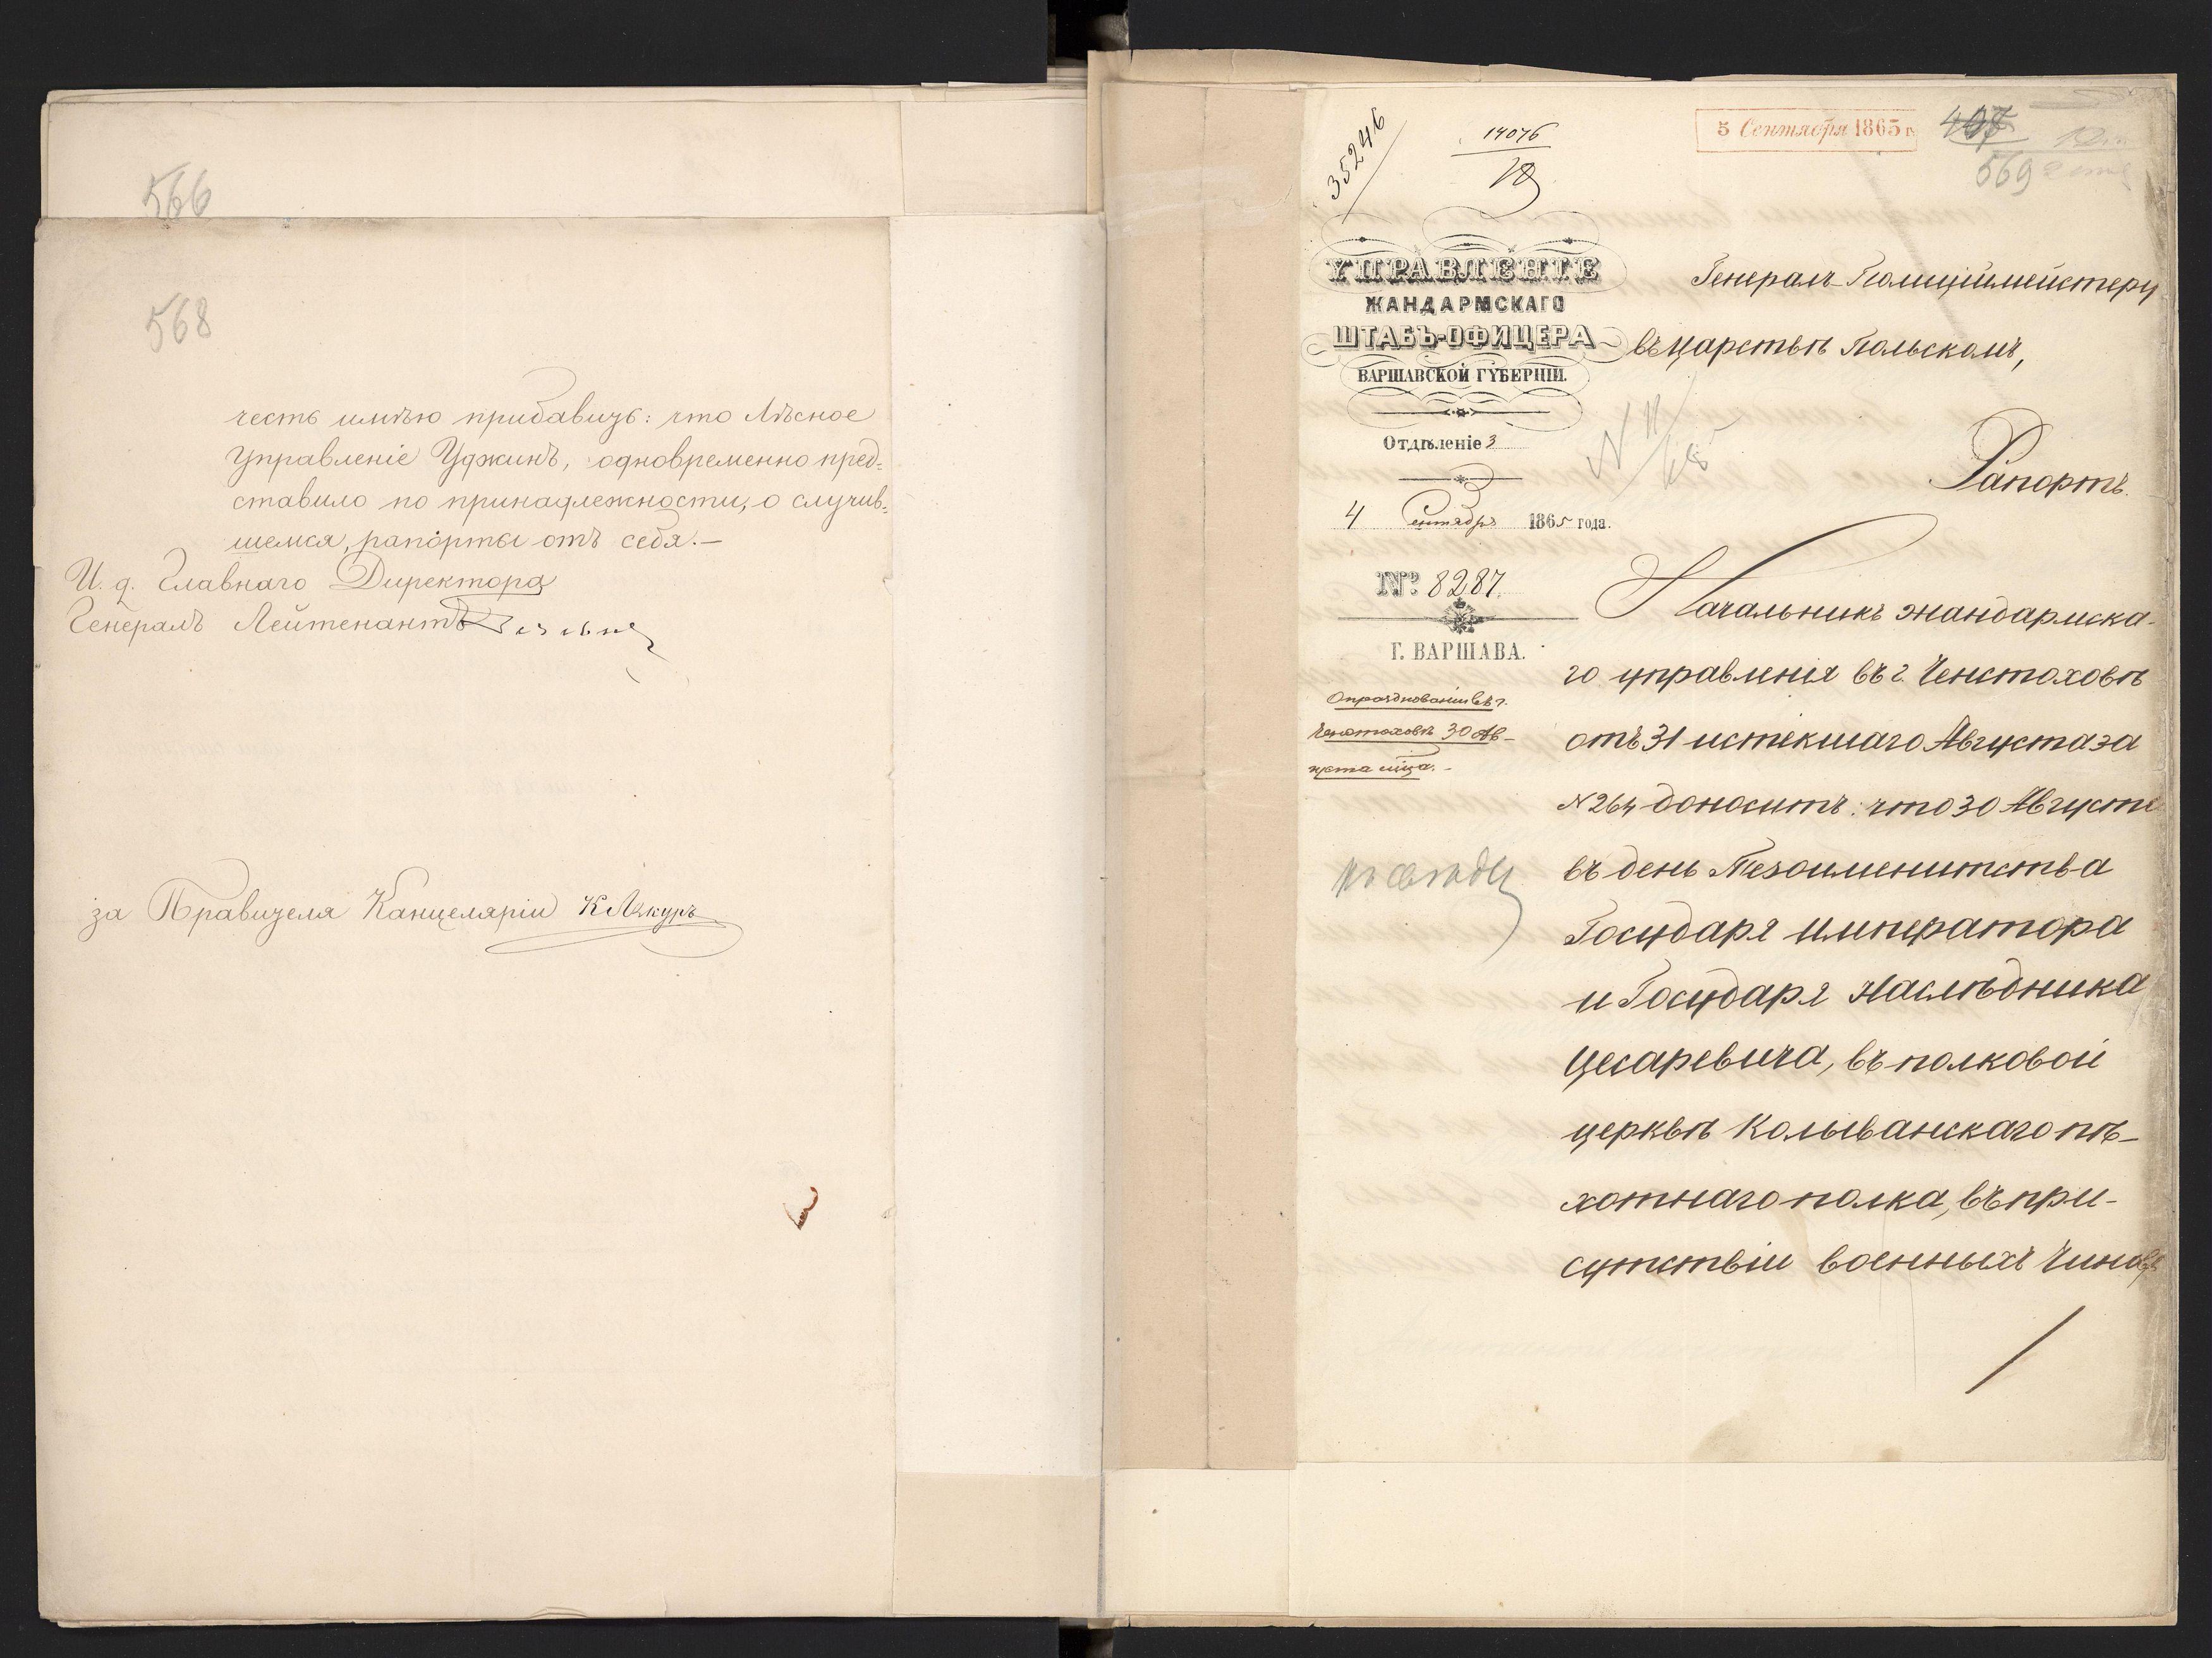 566
568
честь имѣю прибавить: что Лѣсное
Управленіе Уджинъ, одновременно пред=
ставило по принадлежности, о случив=
шемся, рапорты отъ себя.—
И. д. Главнаго Директора
Генералъ Лейтенантъ
за Правителя Канцеляріи
35246
14076
18
5 Сентября 1865 г.
569
УПРАВЛЕНІЕ
ЖАНДАРМСКАГО
ШТАБЪ-ОФИЦЕРА
ВАРШАВСКОЙ ГУБЕРНІИ.
Отдѣленіе 3
4 Сентября 1865 года.
№ 8287.
Г. ВАРШАВА.
О празднованіи въ г.
Ченстоховѣ 30 Ав-
густа м͠ца.-
Генералъ-Полиціймейстеру
въ царствѣ Польскомъ,
Рапортъ.
Начальникъ жандармска-
го управленія въ г. Ченстоховѣ
отъ 31 истекшаго Августа за
N 264 доноситъ: что 30 Августа
въ день Тезоименитства
Государя Императора
и Государя Наслѣдника
Цесаревича, въ полковой
церквѣ Колыванскаго пѣ-
хотнаго полка, въ при-
сутствіи военныхъ Чиновъ